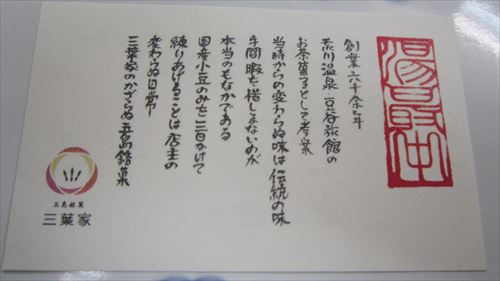 湯最中
創業六十余年
荒川温泉 豆谷旅館の
お茶菓子として考案
当時からの変わらぬ味は伝統の味
手間暇を惜しまないのが
本当のもなかである
国産小豆のみを三日かけて
練りあげることは店主の
変わらぬ日常
三葉家のかざらぬ五島銘菓
五島銘菓
三葉家